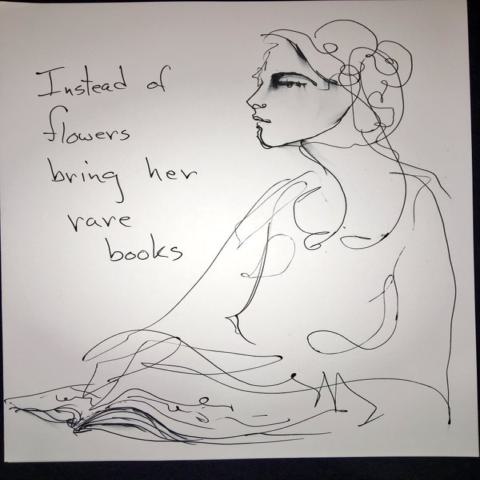 Instead of
flowers
bring her
rare
books